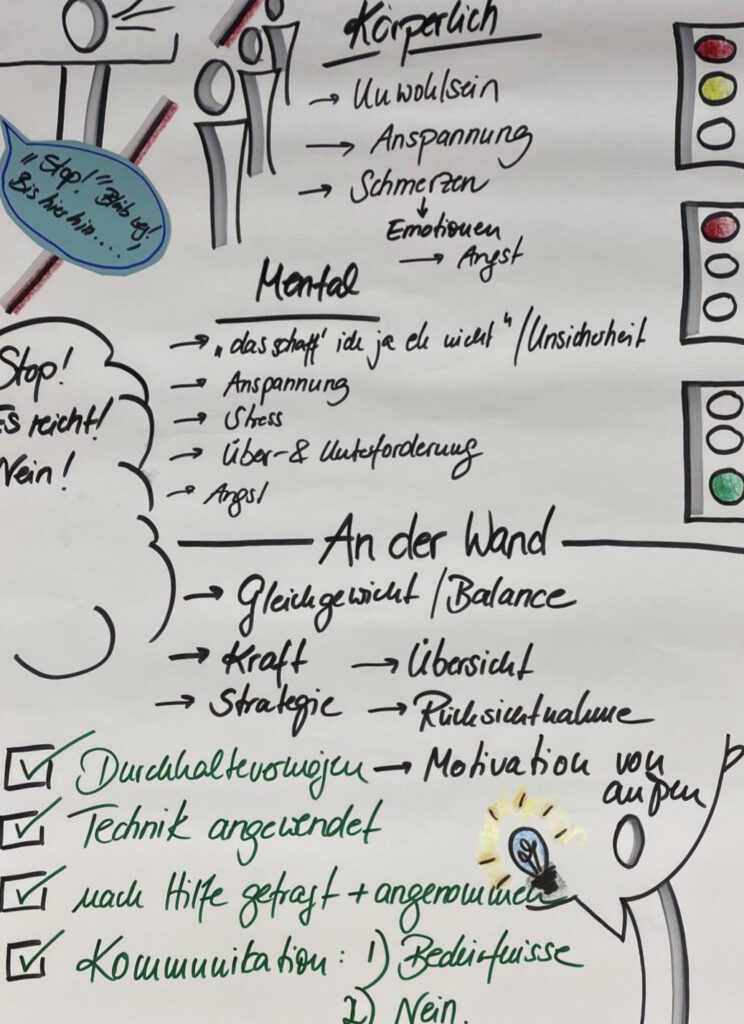 Körperlich
→ Unwohlsein
→ Anspannung
→ Schmerzen
↓
Emotionen
→ Angst
„Stop!“ Bleib weg!
Bis hier hin....."
Mental
→ „das schaff' ich ja eh nicht“/Unsicherheit
→ Anspannung
→ Stress
→ Über- & Unterforderung
→ Angst
Stop!
Es reicht!
Nein!
An der Wand
→ Gleichgewicht / Balance
→ Kraft → Übersicht
→ Strategie → Rücksichtnahme
Durchhaltevermögen → Motivation von außen
Technik angewendet
nach Hilfe gefragt + angenommen
Kommunikation: 1) Bedürfnisse
2) Nein.